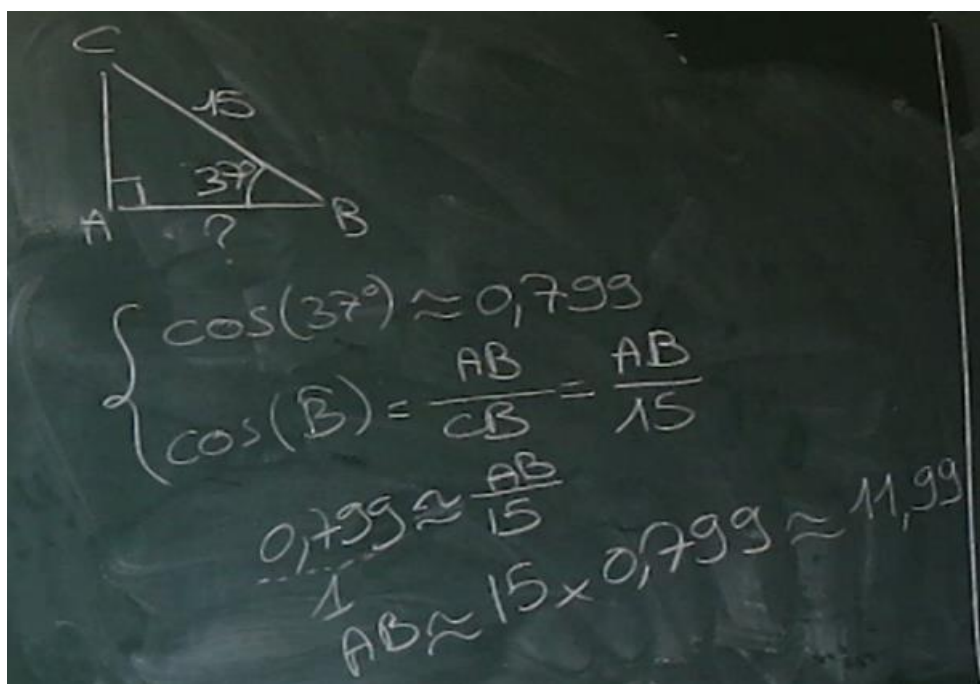 C
15
37°
A
?
B
cos(37°) ≈ 0,799
cos(B̂) = AB/CB = AB/15
0,799/1 ≈ AB/15
AB ≈ 15 × 0,799 ≈ 11,99